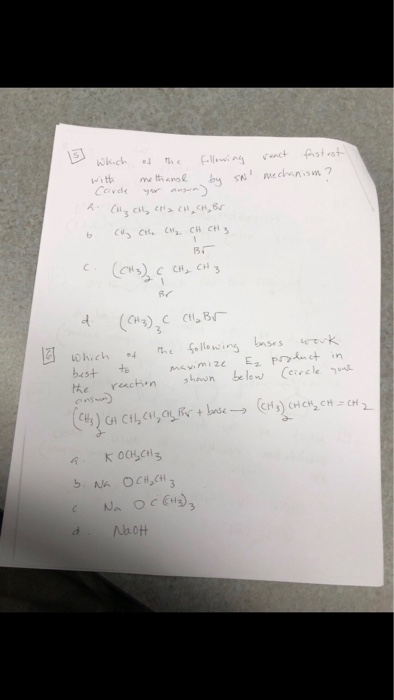 5 Which of the following react fastest
with methanol by SN1 mechanism?
(circle your answer)
a. CH3 CH2 CH2 CH2 CH2 Br
b CH3 CH2 CH2 CH CH3
Br
c. (CH3)2 C CH2 CH3
Br
d (CH3)3 C CH2 Br
6 Which of the following bases work
best to maximize E2 product in
the reaction shown below (circle your
answer)
(CH3)2 CH CH2 CH2 CH2 Br + base → (CH3)2 CHCH2 CH = CH2
a. K OCH2CH3
b. Na OCH2CH3
c Na OC(CH3)3
d. NaOH